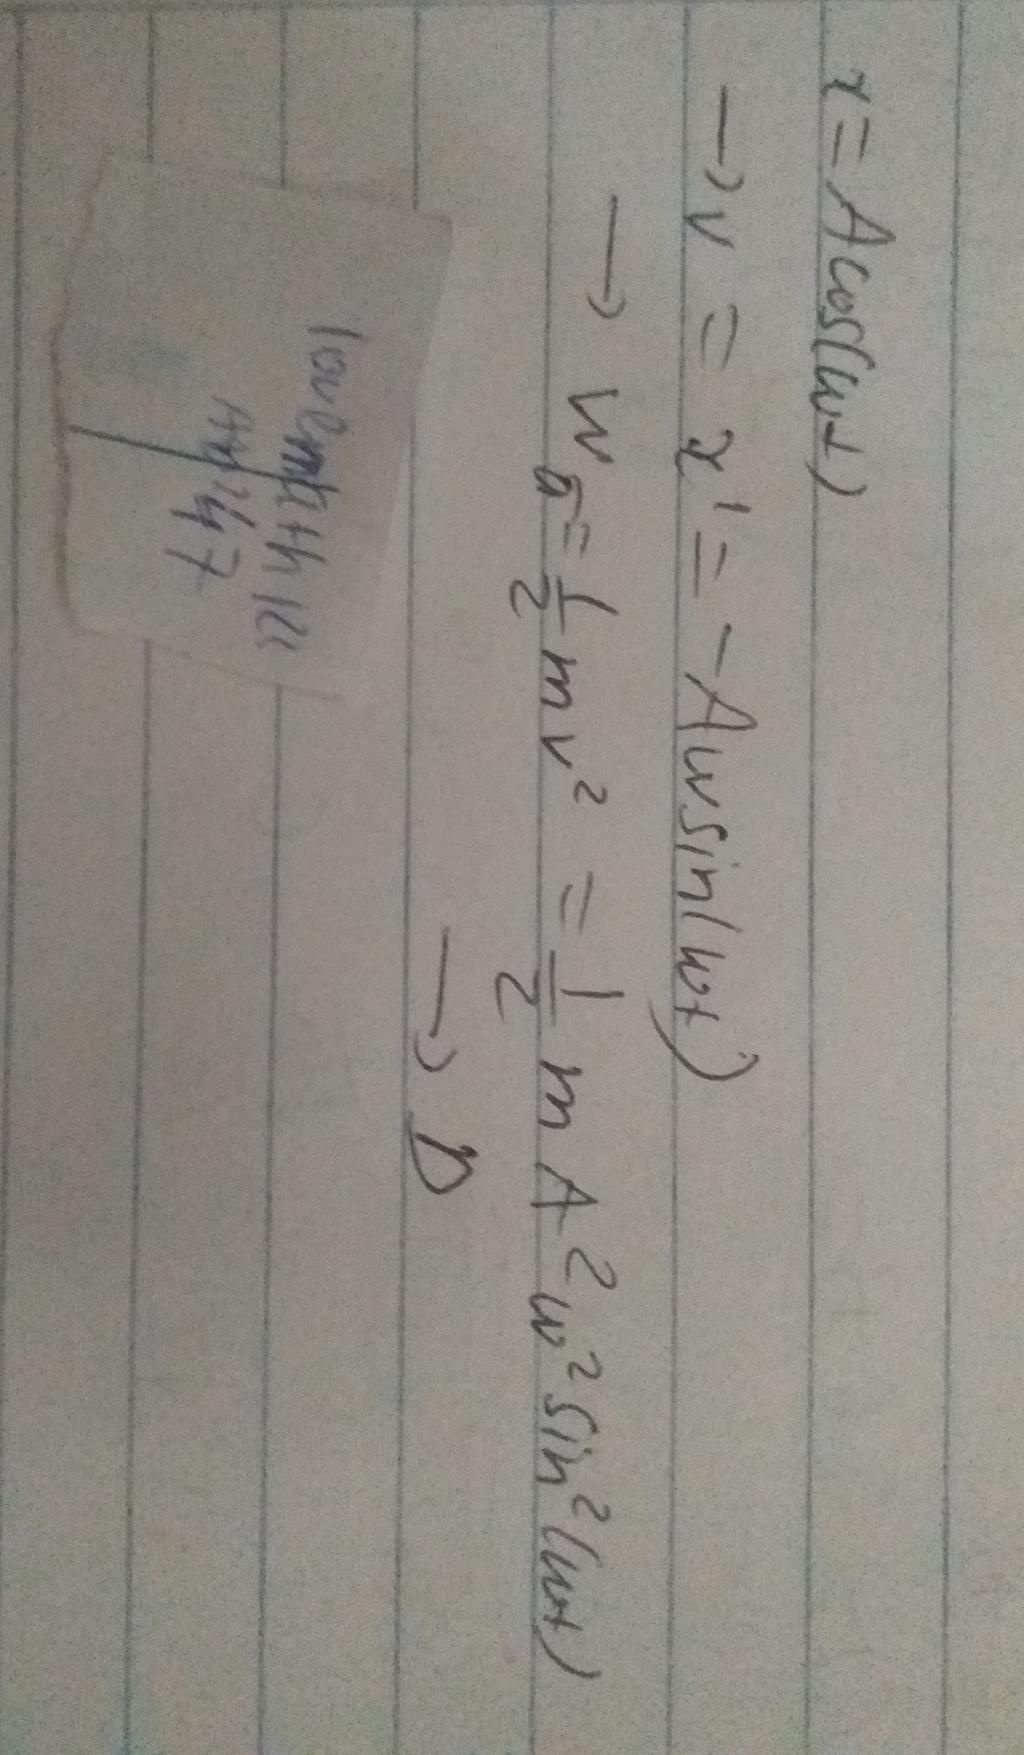 x = Acos(ωt)
→ v = x' = -Aωsin(ωt)
→ Wđ = 1/2 mv² = 1/2 mA²ω²sin²(ωt)
→ D